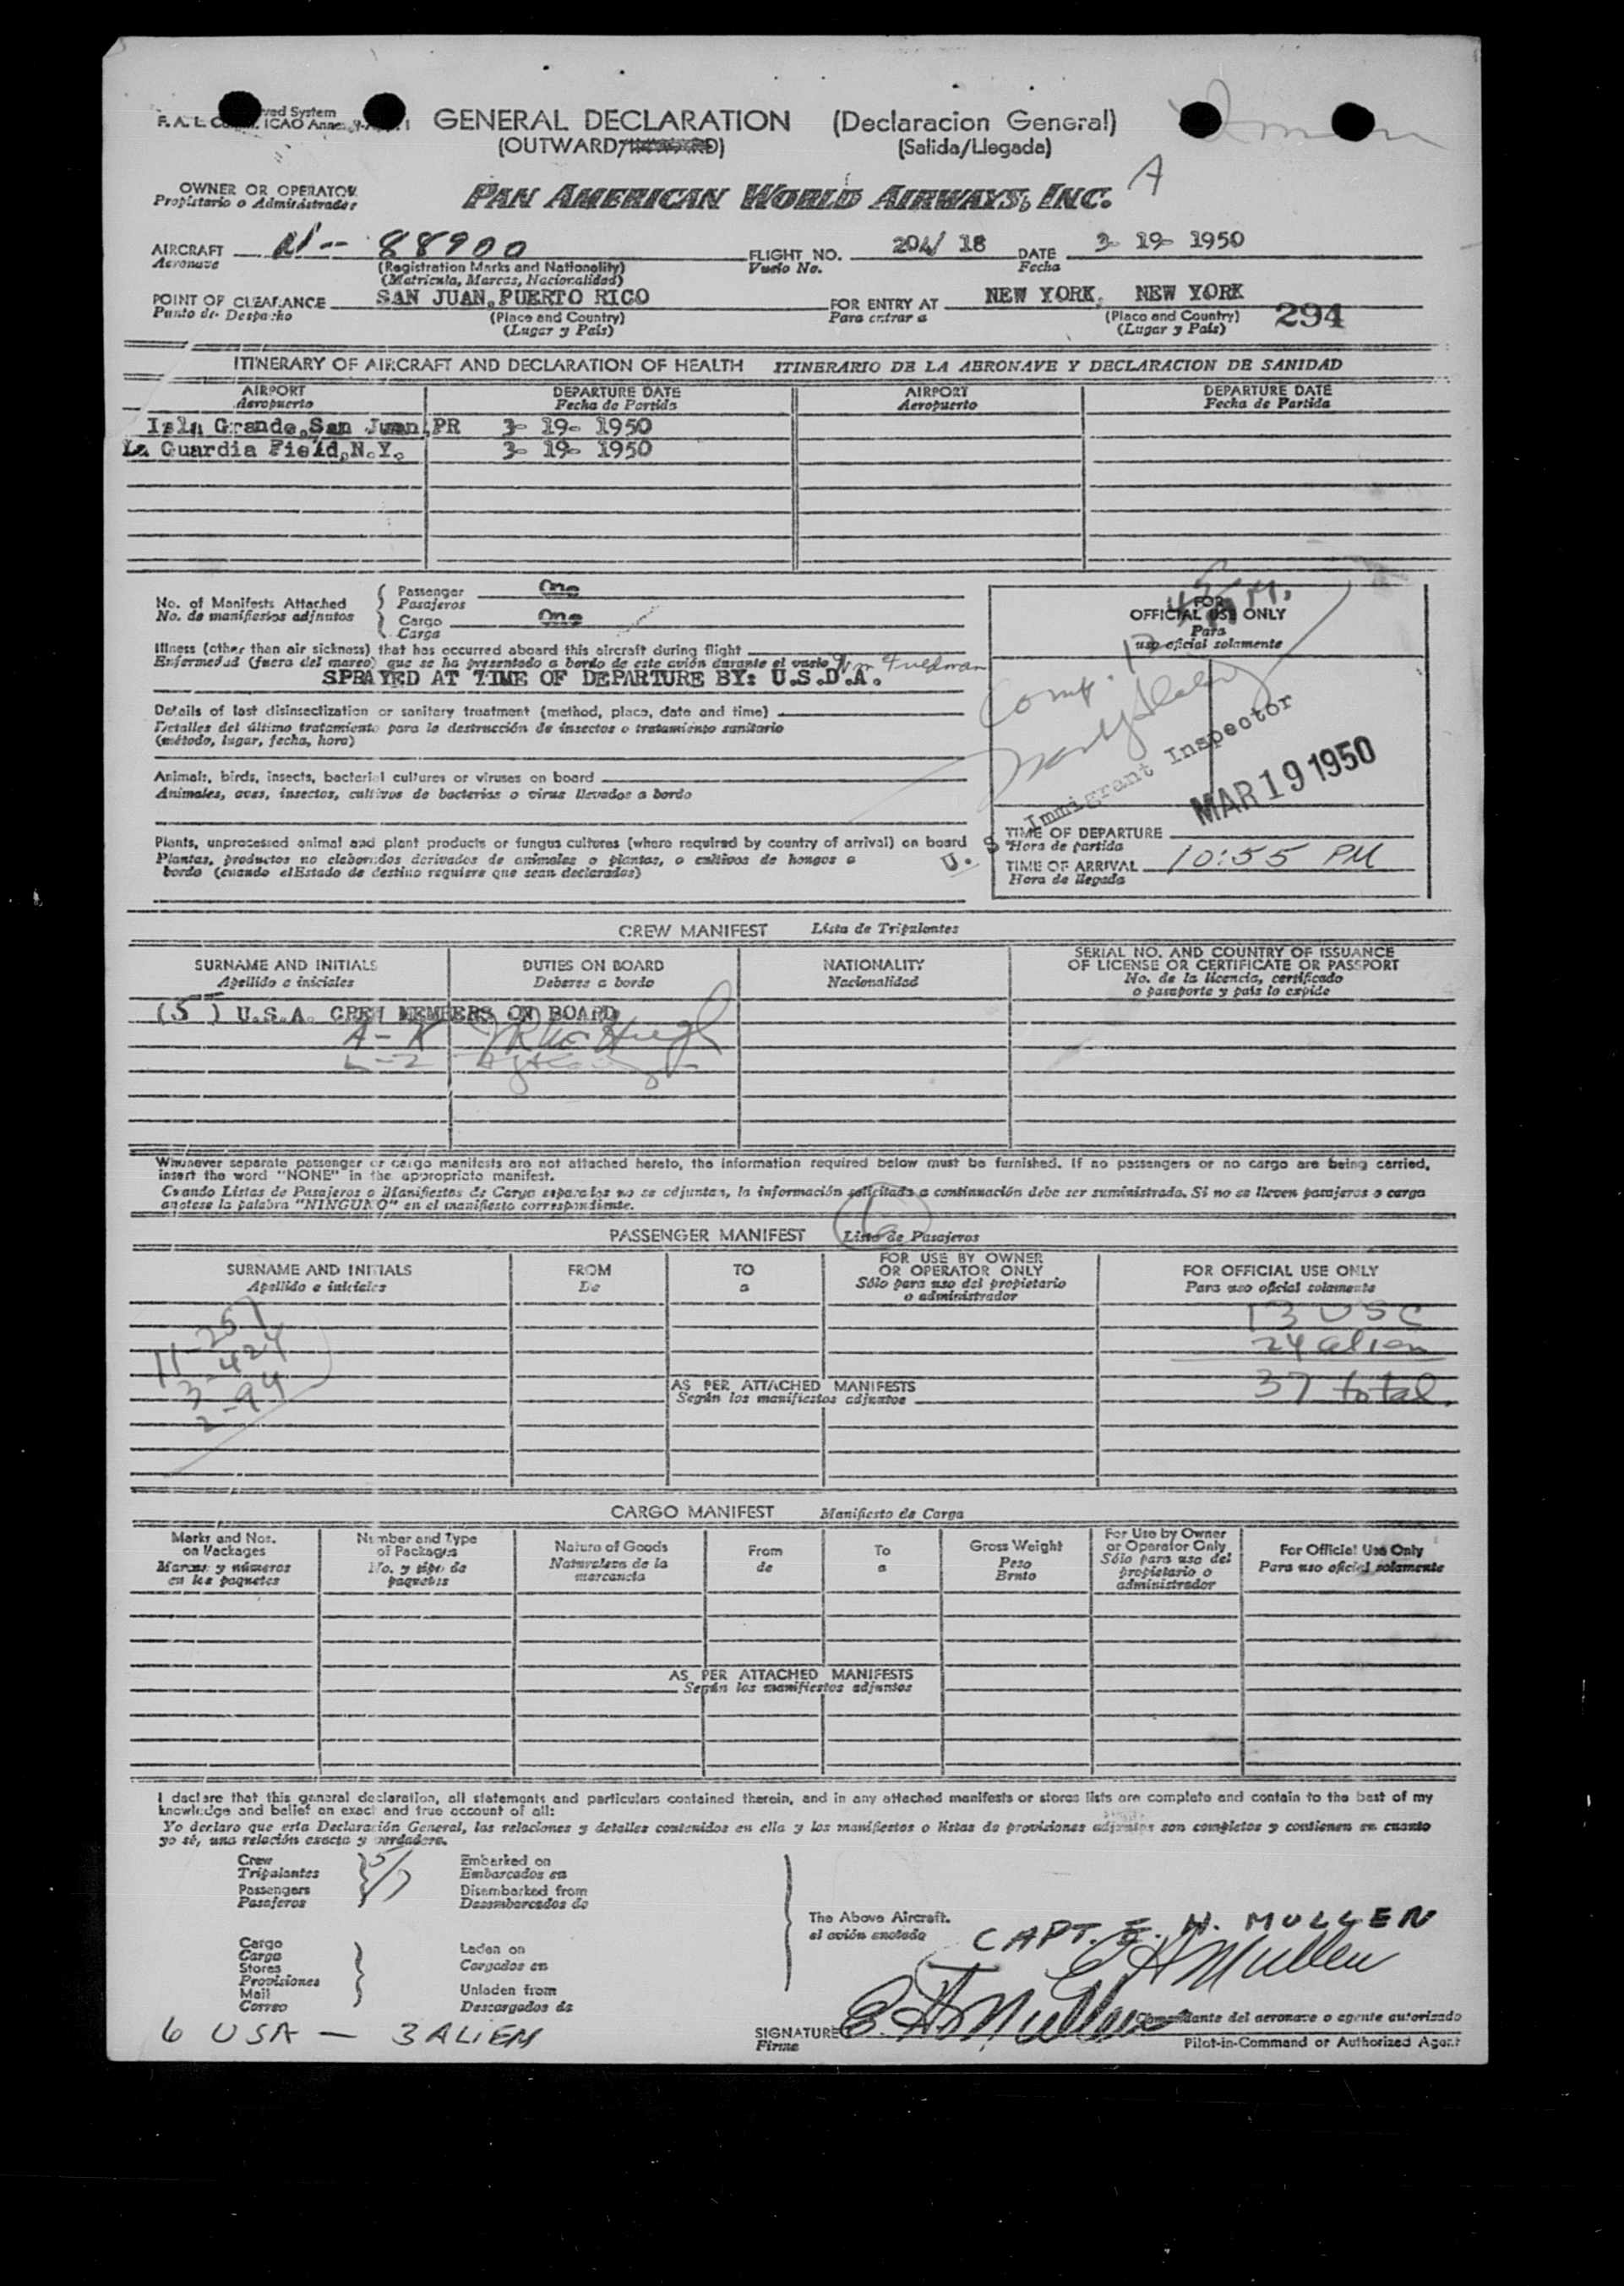 GENERAL DECLARATION (Declaracion General)
(OUTWARD/ (Salida/Llegada)
A
OWNER OR OPERATOR
Propietario o Administrador
PAN AMERICAN WORLD AIRWAYS, INC.
AIRCRAFT N-- 88900 FLIGHT NO. 204/ 18 DATE 3- 19- 1950
Aeronave (Registration Marks and Nationality) Vuelo No. Fecha
(Matricula, Marcas, Nacionalidad)
POINT OF CLEARANCE SAN JUAN, PUERTO RICO FOR ENTRY AT NEW YORK, NEW YORK
Punto de Despacho (Place and Country) Para entrar a (Place and Country) 294
(Lugar y País) (Lugar y País)
ITINERARY OF AIRCRAFT AND DECLARATION OF HEALTH ITINERARIO DE LA AERONAVE Y DECLARACION DE SANIDAD
AIRPORT DEPARTURE DATE AIRPORT DEPARTURE DATE
Aeropuerto Fecha de Partida Aeropuerto Fecha de Partida
Isla Grande, San Juan, PR 3- 19- 1950
La Guardia Field, N.Y. 3- 19- 1950
No. of Manifests Attached
No. de manifiestos adjuntos
Passenger One
Pasajeros
Cargo One
Carga
Illness (other than air sickness) that has occurred aboard this aircraft during flight
Enfermedad (fuera del mareo) que se ha presentado a bordo de este avión durante el vuelo
SPRAYED AT TIME OF DEPARTURE BY: U.S.D.A.
Details of last disinsectization or sanitary treatment (method, place, date and time)
Detalles del último tratamiento para la destrucción de insectos o tratamiento sanitario
(método, lugar, fecha, hora)
Animals, birds, insects, bacterial cultures or viruses on board
Animales, aves, insectos, cultivos de bacterias o virus llevados a bordo
Plants, unprocessed animal and plant products or fungus cultures (where required by country of arrival) on board
Plantas, productos no elaborados derivados de animales o plantas, o cultivos de hongos a
bordo (cuando el Estado de destino requiere que sean declaradas)
FOR
OFFICIAL USE ONLY
Para
uso oficial solamente
Comp.
U. S. Immigrant Inspector
MAR 19 1950
TIME OF DEPARTURE
Hora de partida
TIME OF ARRIVAL 10:55 PM
Hora de llegada
CREW MANIFEST Lista de Tripulantes
SURNAME AND INITIALS DUTIES ON BOARD NATIONALITY SERIAL NO. AND COUNTRY OF ISSUANCE
OF LICENSE OR CERTIFICATE OR PASSPORT
Apellido e iniciales Deberes a bordo Nacionalidad No. de la licencia, certificado
o pasaporte y país lo expide
(5) U.S.A. CREW MEMBERS ON BOARD
A - K
L - Z
Whenever separate passenger or cargo manifests are not attached hereto, the information required below must be furnished. If no passengers or no cargo are being carried,
insert the word "NONE" in the appropriate manifest.
Cuando Listas de Pasajeros o Manifiestos de Carga separados no se adjuntan, la información solicitada a continuación debe ser suministrada. Si no se lleven pasajeros o carga
anotese la palabra "NINGUNO" en el manifiesto correspondiente.
PASSENGER MANIFEST Lista de Pasajeros
SURNAME AND INITIALS FROM TO FOR USE BY OWNER
OR OPERATOR ONLY FOR OFFICIAL USE ONLY
Apellido e iniciales De a Sólo para uso del propietario
o administrador Para uso oficial solamente
13 USC
24 alien
37 total.
11-251
3-424
2-94
AS PER ATTACHED MANIFESTS
Según los manifiestos adjuntos
CARGO MANIFEST Manifiesto de Carga
Marks and Nos.
on Packages
Marcas y números
en los paquetes
Number and Type
of Packages
No. y tipo de
paquetes
Nature of Goods
Naturaleza de la
mercancía
From
de
To
a
Gross Weight
Peso
Bruto
For Use by Owner
or Operator Only
Sólo para uso del
propietario o
administrador
For Official Use Only
Para uso oficial solamente
AS PER ATTACHED MANIFESTS
Según los manifiestos adjuntos
I declare that this general declaration, all statements and particulars contained therein, and in any attached manifests or stores lists are complete and contain to the best of my
knowledge and belief an exact and true account of all:
Yo declaro que esta Declaración General, las relaciones y detalles contenidos en ella y los manifiestos o listas de provisiones adjuntos son completos y contienen en cuanto
yo sé, una relación exacta y verdadera.
Crew
Tripulantes
Passengers
Pasajeros
Embarked on
Embarcados en
Disembarked from
Desembarcados de
Cargo
Carga
Stores
Provisiones
Mail
Correo
Laden on
Cargados en
Unladen from
Descargados de
The Above Aircraft.
el avión anotado
CAPT. E. H. MULLEN
E H Mullen
6 USA - 3 ALIEN
SIGNATURE E. H. Mullen
Firma
Comandante del aeronave o agente autorizado
Pilot-in-Command or Authorized Agent